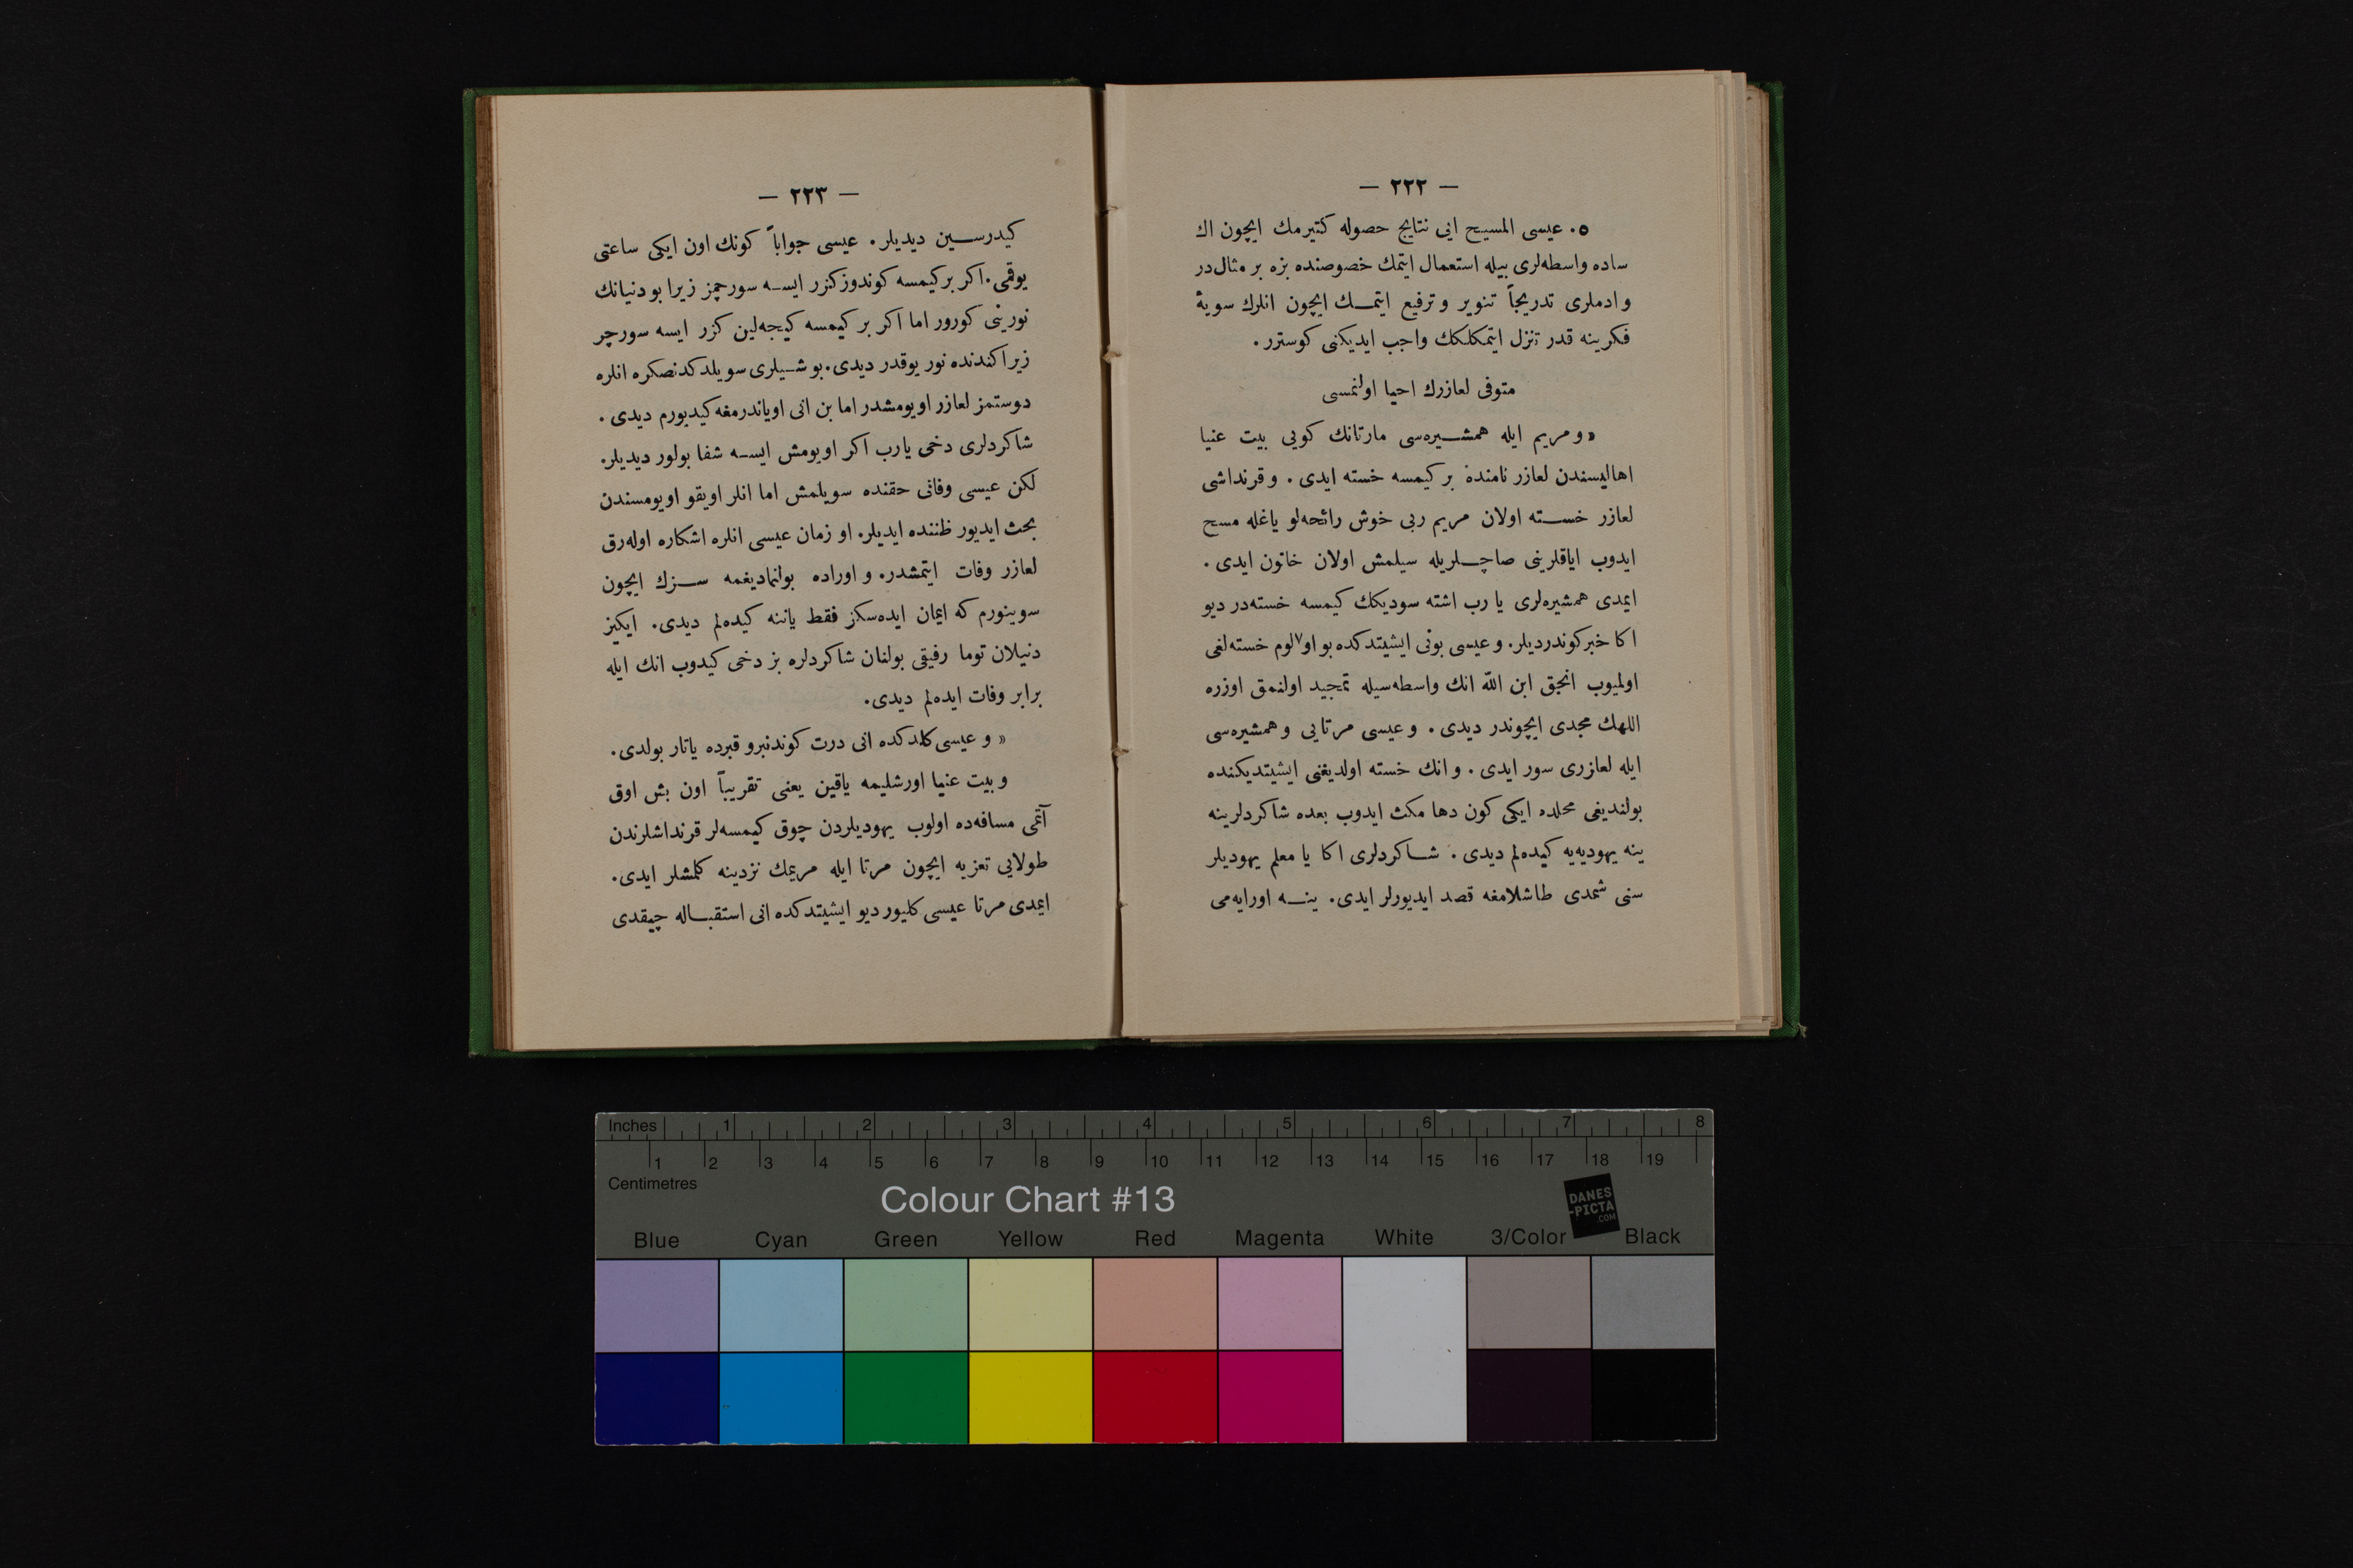 — ٢٢٢ —
٥. عیسی المسیح ایی نتایج حصوله کتیرمك ایچون اك
ساده واسطه‌لری بیله استعمال ایتمك خصوصنده بزه بر مثال‌در
وادملری تدریجاً تنویر و ترفیع ایتمـــك ایچون انلرك سویهٔ
فکرینه قدر تنزل ایتمکلكك واجب ایدیکنی کوسترر .
متوفی لعازرك احیا اولنمسی
« و مریم ایله همشـــیره‌سی مارتانك کویی بیت عنیا
اهالیسندن لعازر نامنده بر کیمسه خسته ایدی . و قرنداشی
لعازر خســـته اولان مریم ربی خوش رائحه‌لو یاغله مسح
ایدوب ایاقلرینی صاچـــلریله سیلمش اولان خاتون ایدی .
ایمدی همشیره‌لری یا رب اشته سودیكك کیمسه خسته‌در دیو
اکا خبر کوندردیلر. و عیسی بونی ایشیتدکده بو اولوم خسته‌لغی
اولمیوب انجق ابن اللّه انك واسطه‌سیله تمجید اولنمق اوزره
اللهك مجدی ایچوندر دیدی . و عیسی مرتایی و همشیره‌سی
ایله لعازری سور ایدی . و انك خسته اولدیغنی ایشیتدیکنده
بولندیغی محلده ایکی کون دها مکث ایدوب بعده شاکردلرینه
ینه یهودیه‌یه کیده‌لم دیدی . شـــاکردلری اکا یا معلم یهودیلر
سنی شمدی طاشلامغه قصد ایدیورلر ایدی. ینـــه اورایه‌می
— ٢٢٣ —
کیدرســـین دیدیلر. عیسی جواباً کونك اون ایکی ساعتی
یوقمی. اکر بر کیمسه کوندوز کزر ایســـه سورچمز زیرا بو دنیانك
نورینی کورور اما اکر بر کیمسه کیجه‌لین کزر ایسه سورچر
زیرا کندنده نور یوقدر دیدی. بو شـــیلری سویلدکدنصکره انلره
دوستمز لعازر اویومشدر اما بن انی اویاندرمغه کیدیورم دیدی .
شاکردلری دخی یارب اکر اویومش ایســـه شفا بولور دیدیلر.
لکن عیسی وفاتی حقنده سویلمش اما انلر اویقو اویومسندن
بحث ایدیور ظننده ایدیلر. او زمان عیسی انلره اشکاره اوله‌رق
لعازر وفات ایتمشدر. و اوراده بولنمادیغمه ســـزك ایچون
سوینورم که ایمان ایده‌سکز فقط یاننه کیده‌لم دیدی. ایکیز
دنیلان توما رفیقی بولنان شاکردلره بز دخی کیدوب انك ایله
برابر وفات ایده‌لم دیدی.
« و عیسی کلدکده انی درت کوندنبرو قبرده یاتار بولدی.
و بیت عنیا اورشلیمه یاقین یعنی تقریباً اون بش اوق
آتمی مسافه‌ده اولوب یهودیلردن چوق کیمسه‌لر قرنداشلرندن
طولایی تعزیه ایچون مرتا ایله مریمك نزدینه کلمشلر ایدی.
ایمدی مرتا عیسی کلیور دیو ایشیتدکده انی استقبـــاله چیقدی
Inches 1 2 3 4 5 6 7 8
1 2 3 4 5 6 7 8 9 10 11 12 13 14 15 16 17 18 19
Centimetres
Colour Chart #13
DANES
-PICTA
.COM
Blue Cyan Green Yellow Red Magenta White 3/Color Black